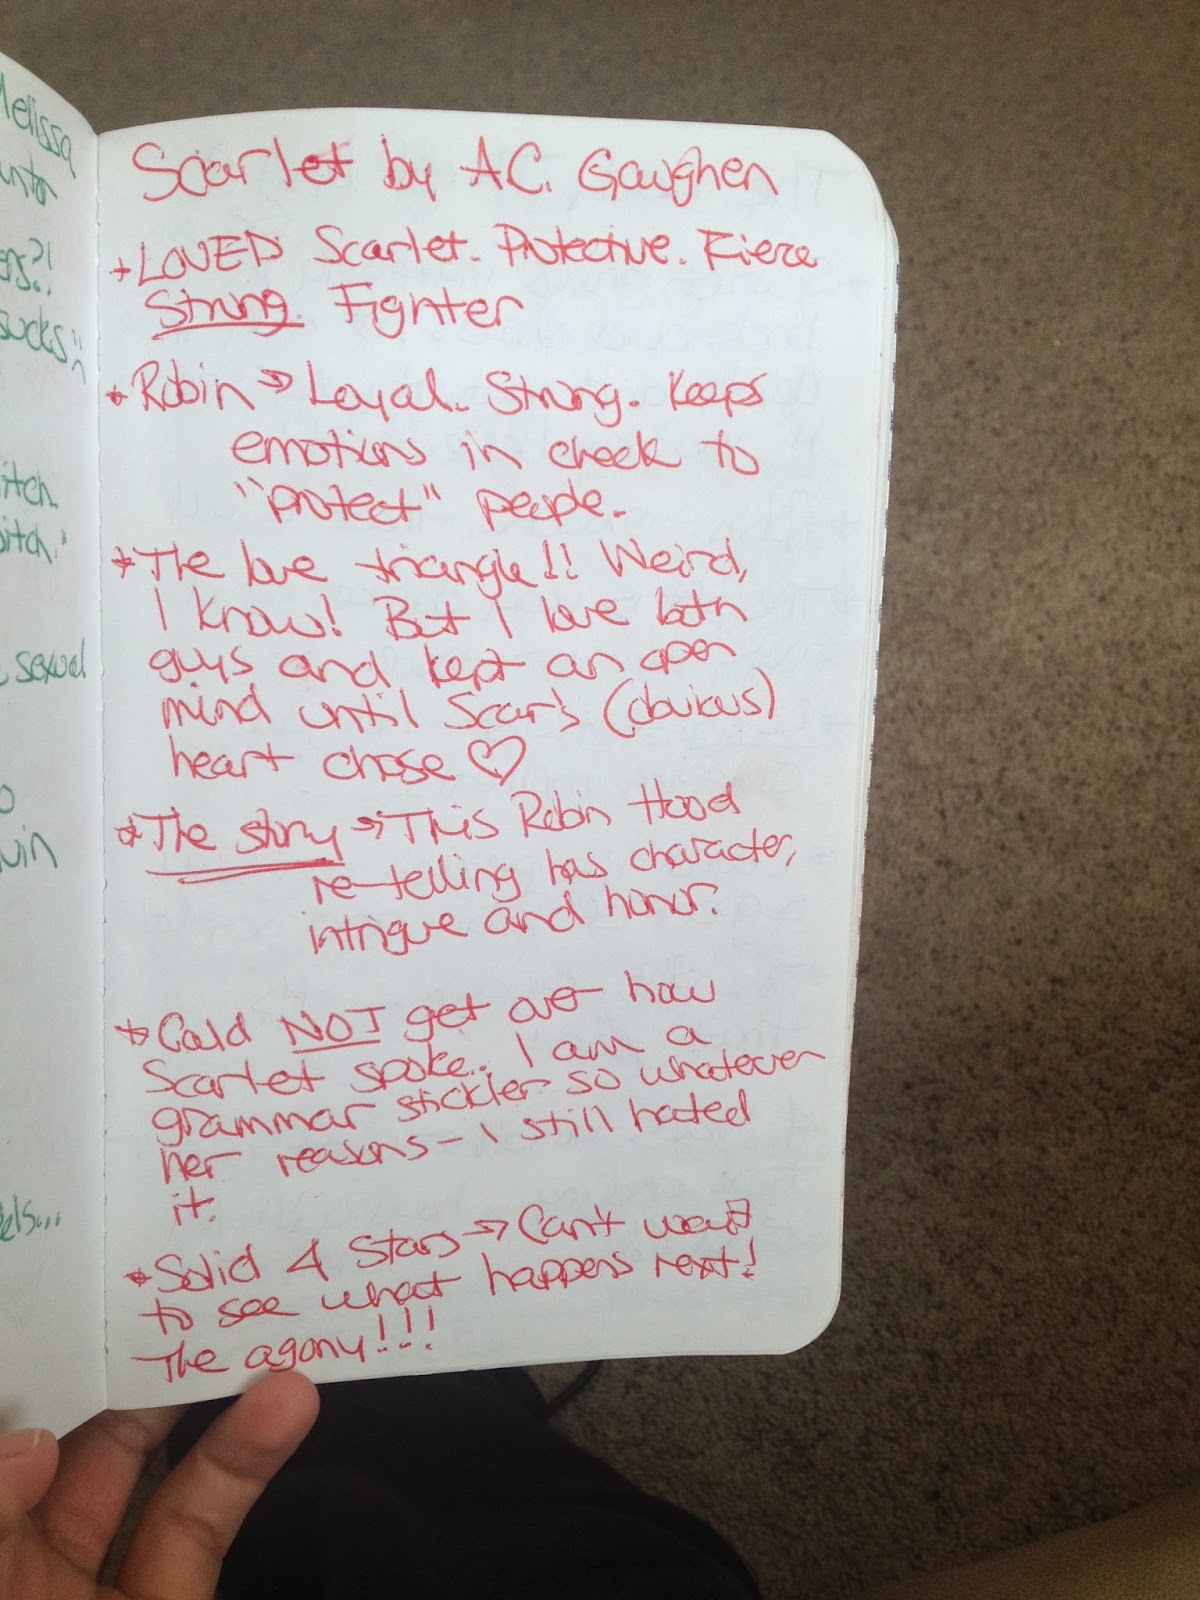 Melissa
sucks
itch.
sexual
Scarlet by A.C. Gaughen
* LOVED Scarlet. Protective. Fierce
Strong. Fighter
* Robin → Loyal. Strong. Keeps
emotions in check to
"protect" people.
* The love triangle!! Weird,
I know! But I love both
guys and kept an open
mind until Scar's (obvious)
heart chose ♡
* The story → This Robin Hood
re-telling has character,
intrigue and honor.
* Could NOT get over how
Scarlet spoke.. I am a
grammar stickler so whatever
her reasons - I still hated
it.
* Solid 4 Stars → Can't wait
to see what happens next!
The agony!!!